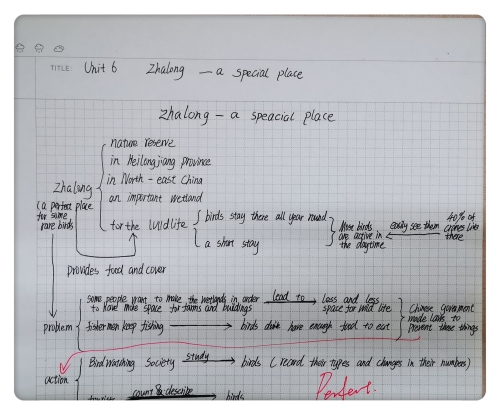 TITLE: Unit 6 Zhalong — a special place
Zhalong — a speacial place
nature reserve
in Heilongjiang province
in North - east China
an important wetland
Zhalong
(a perfect place
for some
rare birds
for the wildlife
birds stay there all year round
a short stay
Most birds
are active in
the daytime
easily see them
40% of
cranes live
there
provides food and cover
problem
some people want to make the wetlands in order
to have more space for farms and buildings
lead to
less and less
space for wild life
fishermen keep fishing
birds don't have enough food to eat
Chinese government
made laws to
prevent these things
action
Bird watching Society
study
birds (record their types and changes in their numbers)
tourists
count & describe
birds
Perfect.